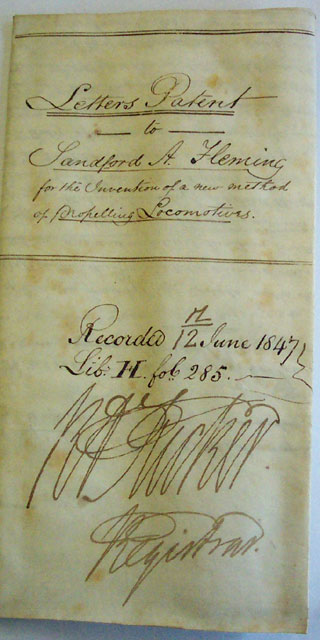 Letters Patent
to
Sandford A Fleming
for the Invention of a new method
of Propelling Locomotives.
Recorded 12 June 1847
Lib: H. fol: 285.
R A Tucker
Registrar.